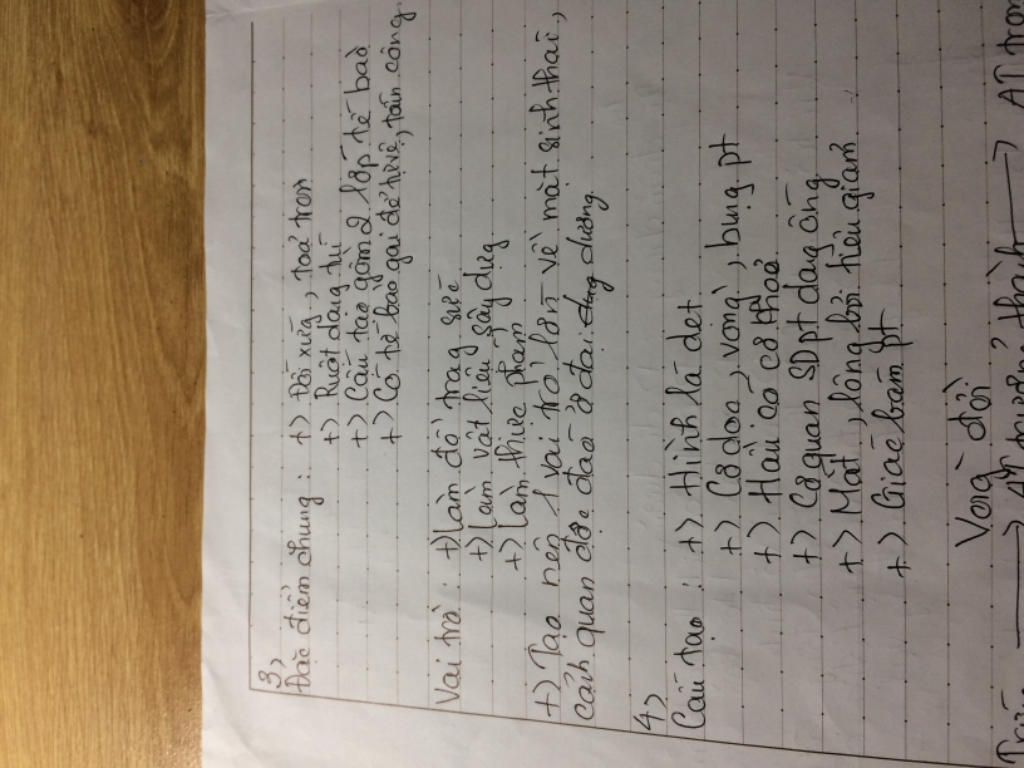 3,
Đặc điểm chung : +) Đối xứng, toả tròn
+) Ruột dạng túi
+) Cấu tạo gồm 2 lớp tế bào
+) Có tế bào gai để tự vệ, tấn công
Vai trò : +) Làm đồ trang sức
+) Làm vật liệu xây dựng
+) Làm thực phẩm
+) Tạo nên 1 vai trò lớn về mặt sinh thái,
cảnh quan độc đáo ở đại dương
4)
Cấu tạo : +) Hình lá dẹt
+) Cơ dọc, vòng, bụng pt
+) Hầu có cơ thoả
+) Cơ quan SD pt dạng ống
+) Mắt, lông bơi tiêu giảm
+) Giác bám pt
Vòng đời
Trứng → AT trưởng thành → AT tron